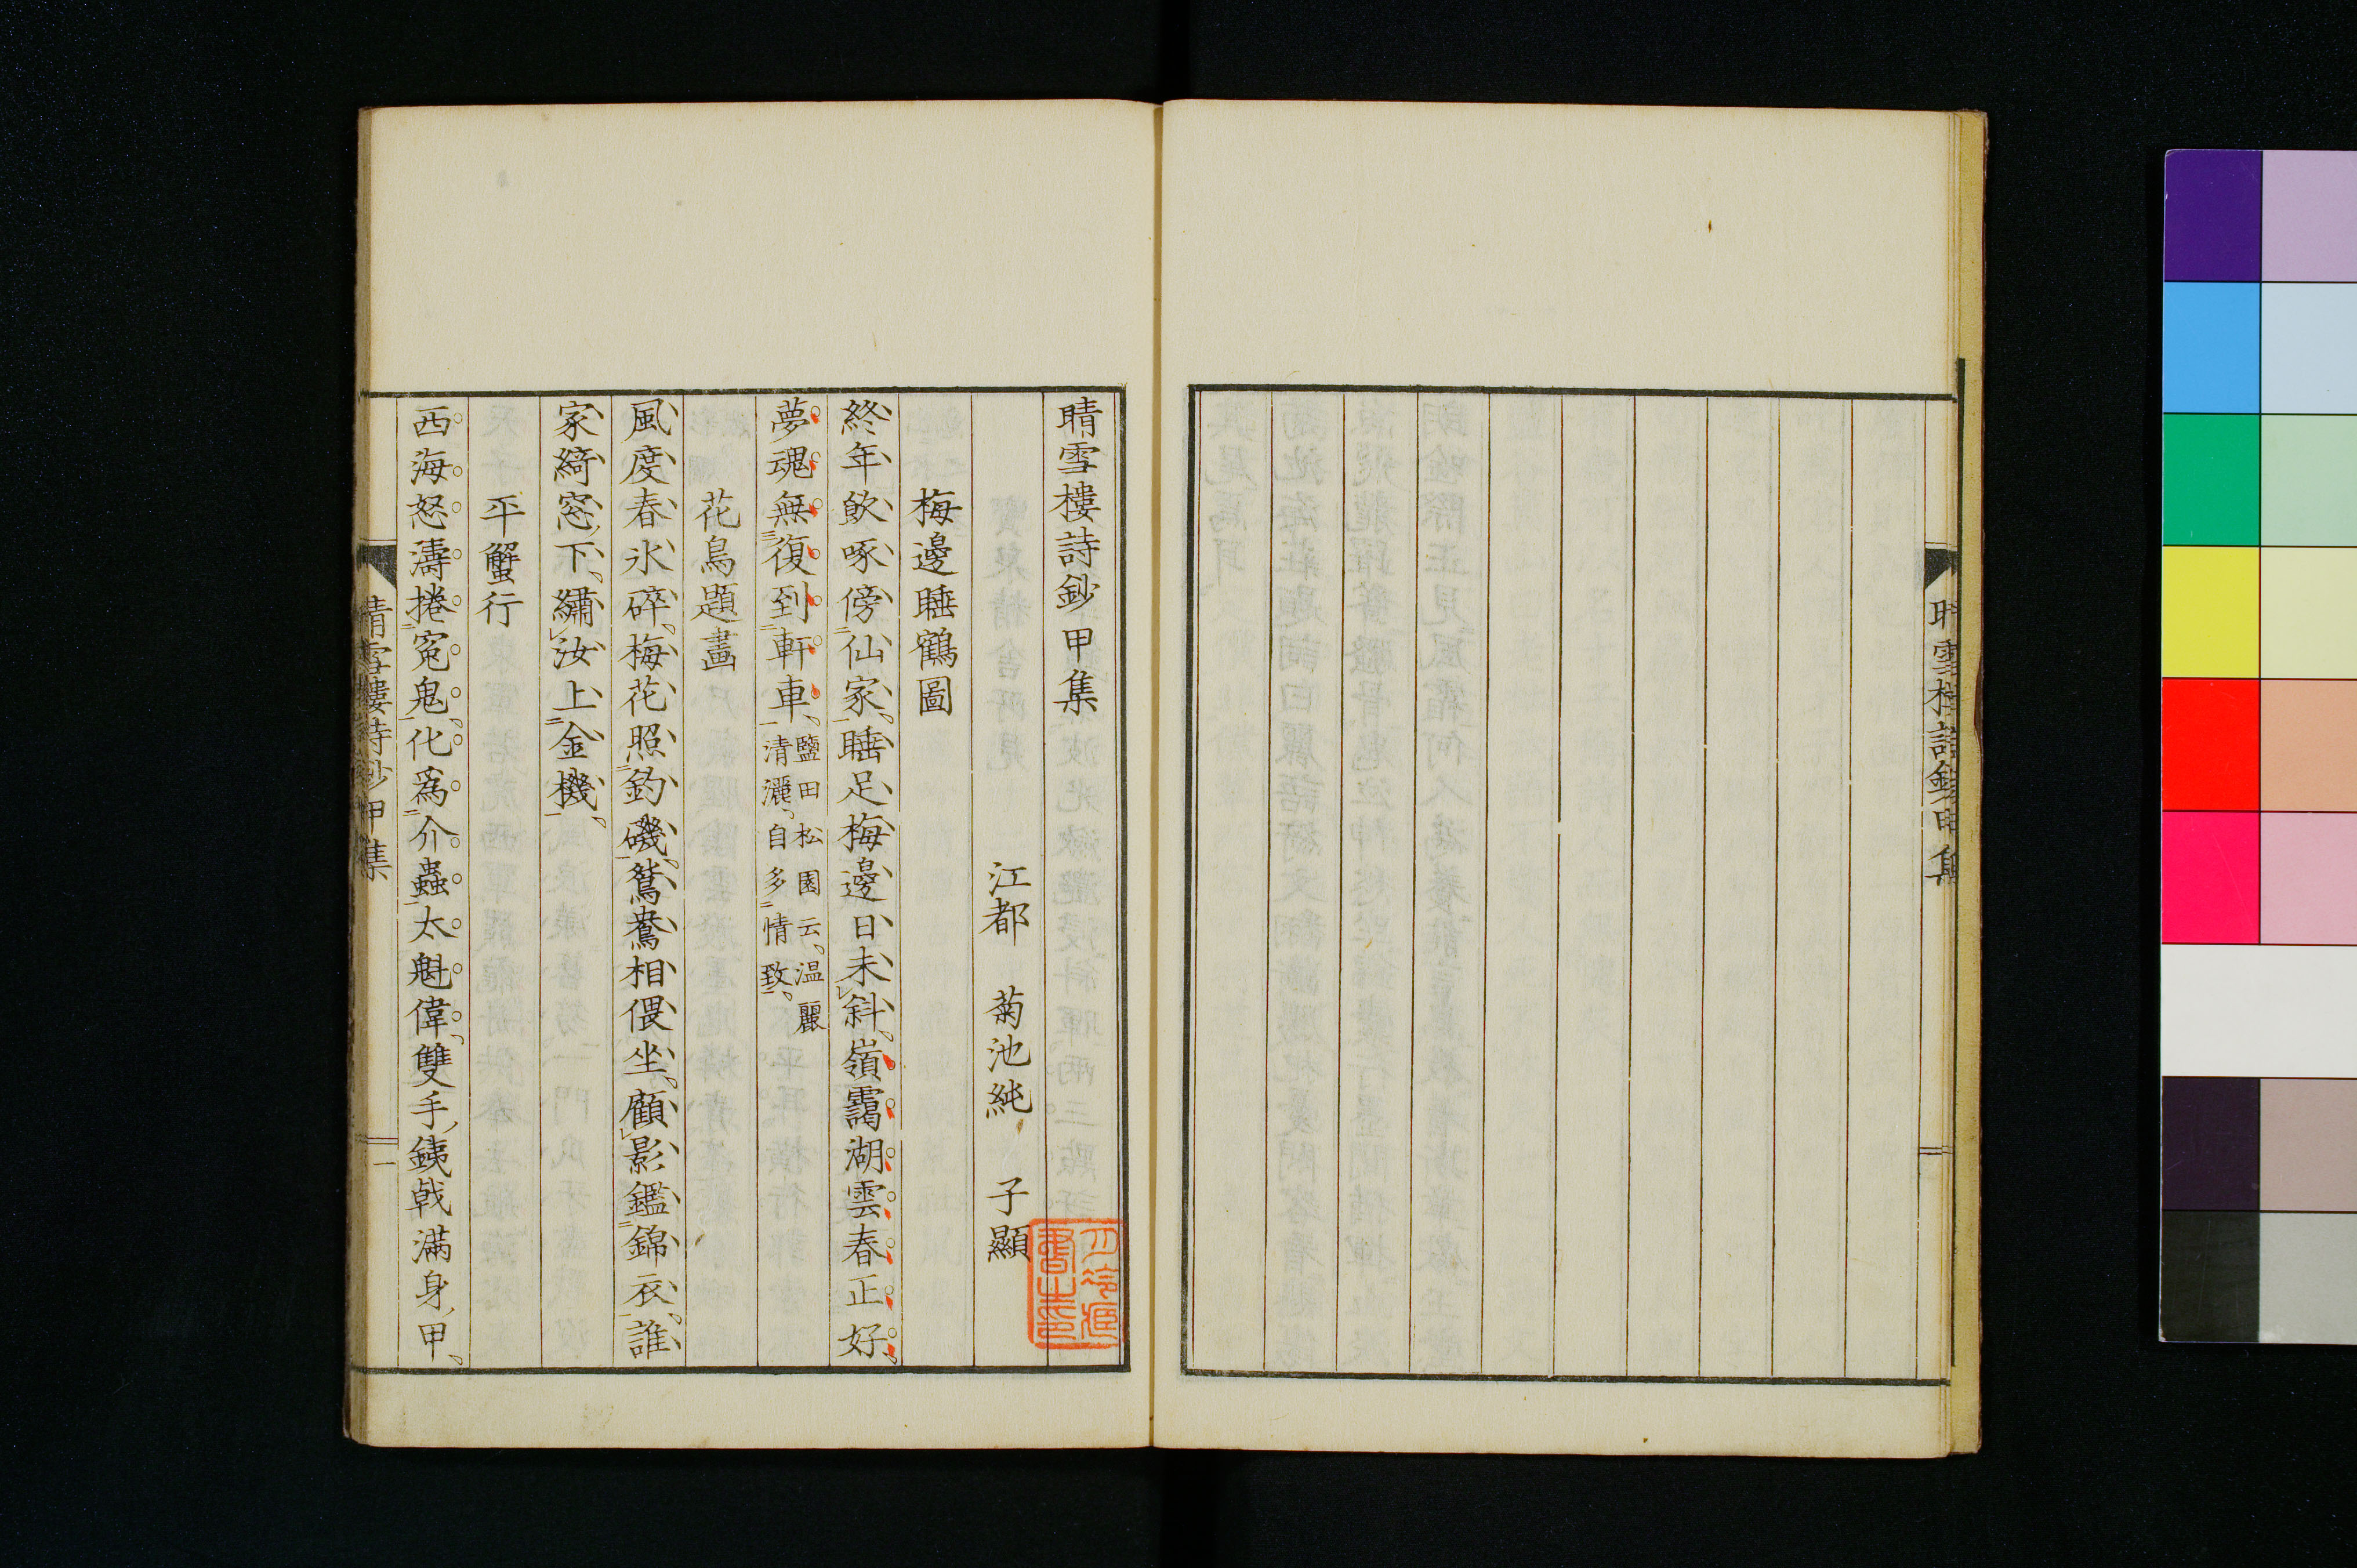 晴雪樓詩鈔甲集
晴雪樓詩鈔甲集
江都 菊池純 子顯
梅邊睡鶴圖
終年飲啄傍仙家、睡足梅邊日未斜、嶺靄湖雲春正好、
夢魂無復到軒車、鹽田松園云、温麗
清灑、自多情致、
花鳥題畫
風度春氷碎、梅花照釣磯、鴛鴦相偎坐、顧影鑑錦衣、誰
家綺窓下、繡汝上金機、
平蟹行
西海怒濤捲寃鬼、化爲介蟲太魁偉、雙手銕戟滿身甲、
晴雪樓詩鈔甲集
一